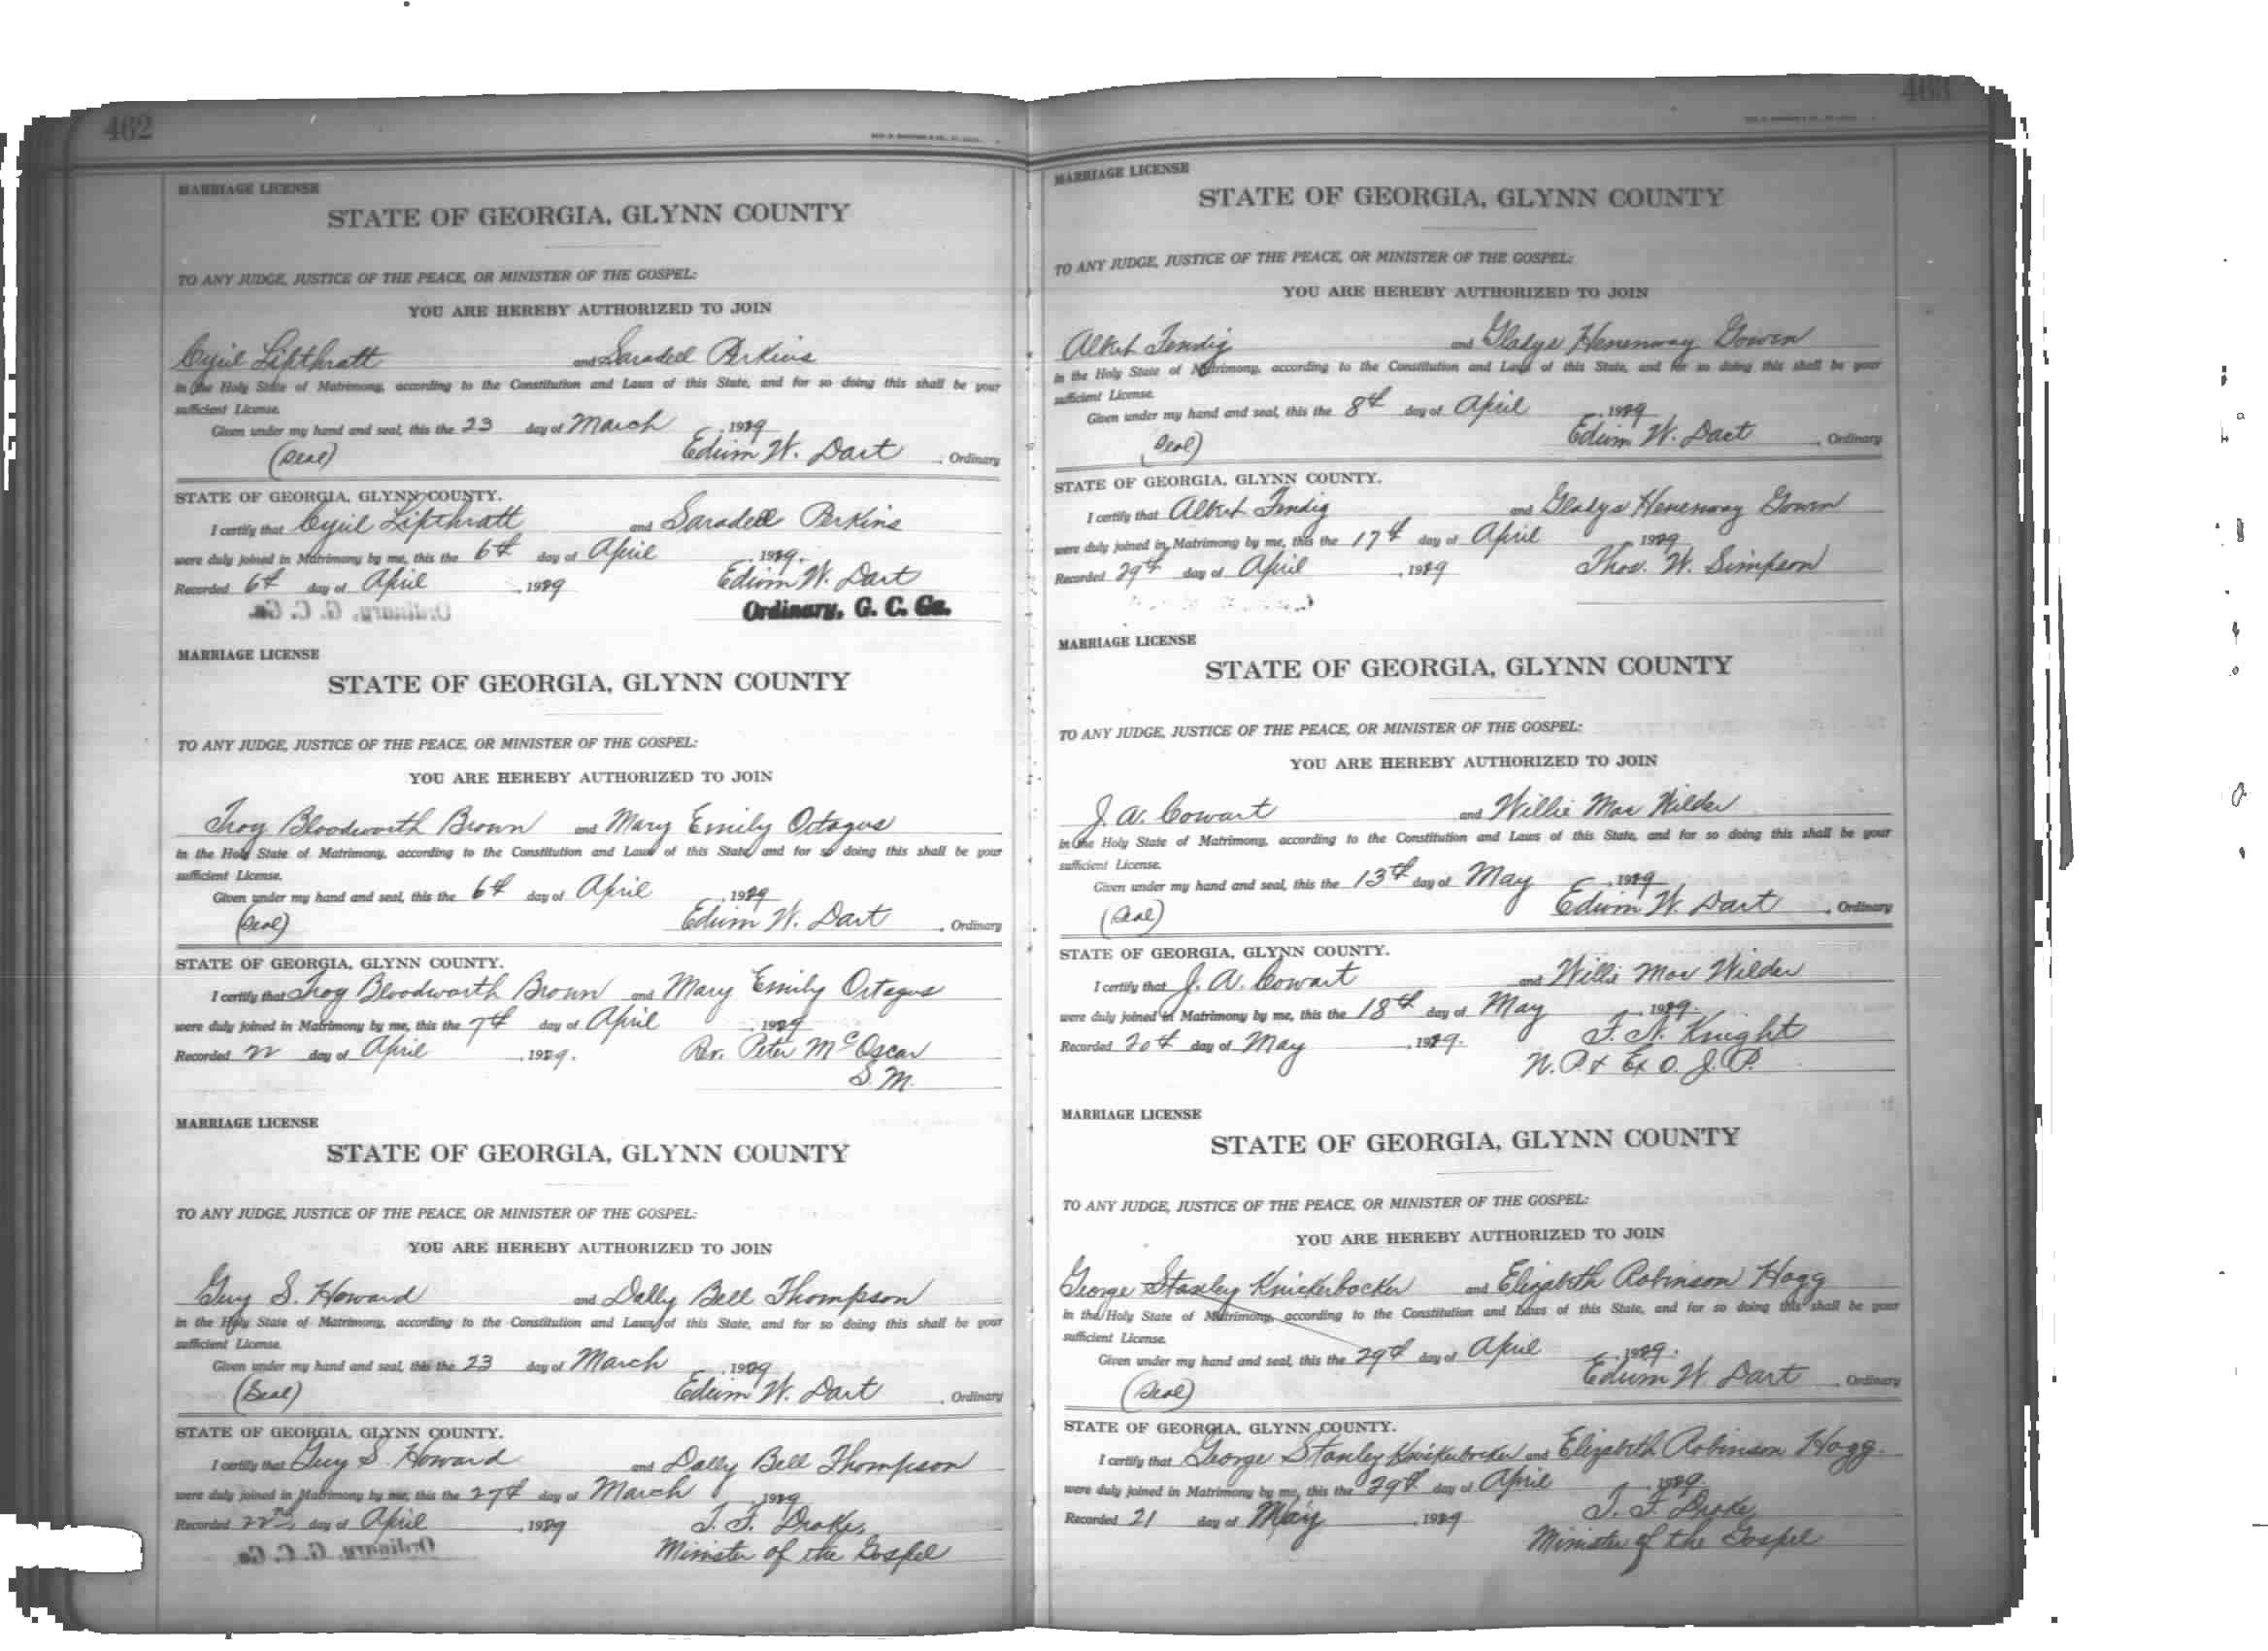 462
MARRIAGE LICENSE
STATE OF GEORGIA, GLYNN COUNTY
TO ANY JUDGE, JUSTICE OF THE PEACE, OR MINISTER OF THE GOSPEL:
YOU ARE HEREBY AUTHORIZED TO JOIN
Cyril Lipthratt and Saradell Perkins
in the Holy State of Matrimony, according to the Constitution and Laws of this State, and for so doing this shall be your
sufficient License.
Given under my hand and seal, this the 23 day of March, 1929
(Seal) Edwin W. Dart, Ordinary
STATE OF GEORGIA, GLYNN COUNTY.
I certify that Cyril Lipthratt and Saradell Perkins
were duly joined in Matrimony by me, this the 6th day of April, 1929.
Recorded 6th day of April, 1929 Edwin W. Dart
Ordinary, G. C. Ga.
MARRIAGE LICENSE
STATE OF GEORGIA, GLYNN COUNTY
TO ANY JUDGE, JUSTICE OF THE PEACE, OR MINISTER OF THE GOSPEL:
YOU ARE HEREBY AUTHORIZED TO JOIN
Troy Bloodworth Brown and Mary Emily Ortagus
in the Holy State of Matrimony, according to the Constitution and Laws of this State, and for so doing this shall be your
sufficient License.
Given under my hand and seal, this the 6th day of April, 1929
(Seal) Edwin W. Dart, Ordinary
STATE OF GEORGIA, GLYNN COUNTY.
I certify that Troy Bloodworth Brown and Mary Emily Ortagus
were duly joined in Matrimony by me, this the 7th day of April, 1929
Recorded 22 day of April, 1929. Rev. Peter McOscar
S. M.
MARRIAGE LICENSE
STATE OF GEORGIA, GLYNN COUNTY
TO ANY JUDGE, JUSTICE OF THE PEACE, OR MINISTER OF THE GOSPEL:
YOU ARE HEREBY AUTHORIZED TO JOIN
Guy S. Howard and Dally Bell Thompson
in the Holy State of Matrimony, according to the Constitution and Laws of this State, and for so doing this shall be your
sufficient License.
Given under my hand and seal, this the 23 day of March, 1929
(Seal) Edwin W. Dart, Ordinary
STATE OF GEORGIA, GLYNN COUNTY.
I certify that Guy S. Howard and Dally Bell Thompson
were duly joined in Matrimony by me, this the 27th day of March, 1929
Recorded 22nd day of April, 1929 T. F. Drake,
Minister of the Gospel
463
MARRIAGE LICENSE
STATE OF GEORGIA, GLYNN COUNTY
TO ANY JUDGE, JUSTICE OF THE PEACE, OR MINISTER OF THE GOSPEL:
YOU ARE HEREBY AUTHORIZED TO JOIN
Albert Fendig and Gladys Henenway Gowen
in the Holy State of Matrimony, according to the Constitution and Laws of this State, and for so doing this shall be your
sufficient License.
Given under my hand and seal, this the 8th day of April, 1929
(Seal) Edwin W. Dart, Ordinary
STATE OF GEORGIA, GLYNN COUNTY.
I certify that Albert Fendig and Gladys Henenway Gowen
were duly joined in Matrimony by me, this the 17th day of April, 1929
Recorded 29th day of April, 1929 Thos. W. Simpson
MARRIAGE LICENSE
STATE OF GEORGIA, GLYNN COUNTY
TO ANY JUDGE, JUSTICE OF THE PEACE, OR MINISTER OF THE GOSPEL:
YOU ARE HEREBY AUTHORIZED TO JOIN
J. A. Cowart and Willie Mae Wilder
in the Holy State of Matrimony, according to the Constitution and Laws of this State, and for so doing this shall be your
sufficient License.
Given under my hand and seal, this the 13th day of May, 1929
(Seal) Edwin W. Dart, Ordinary
STATE OF GEORGIA, GLYNN COUNTY.
I certify that J. A. Cowart and Willie Mae Wilder
were duly joined in Matrimony by me, this the 18th day of May, 1929.
Recorded 20th day of May, 1929. F. N. Knight
N. P. & Ex O. J. P.
MARRIAGE LICENSE
STATE OF GEORGIA, GLYNN COUNTY
TO ANY JUDGE, JUSTICE OF THE PEACE, OR MINISTER OF THE GOSPEL:
YOU ARE HEREBY AUTHORIZED TO JOIN
George Stanley Knickerbocker and Elizabeth Robinson Hogg
in the Holy State of Matrimony, according to the Constitution and Laws of this State, and for so doing this shall be your
sufficient License.
Given under my hand and seal, this the 29th day of April, 1929.
(Seal) Edwin W. Dart, Ordinary
STATE OF GEORGIA, GLYNN COUNTY.
I certify that George Stanley Knickerbocker and Elizabeth Robinson Hogg.
were duly joined in Matrimony by me, this the 29th day of April, 1929.
Recorded 21 day of May, 1929 T. F. Drake,
Minister of the Gospel